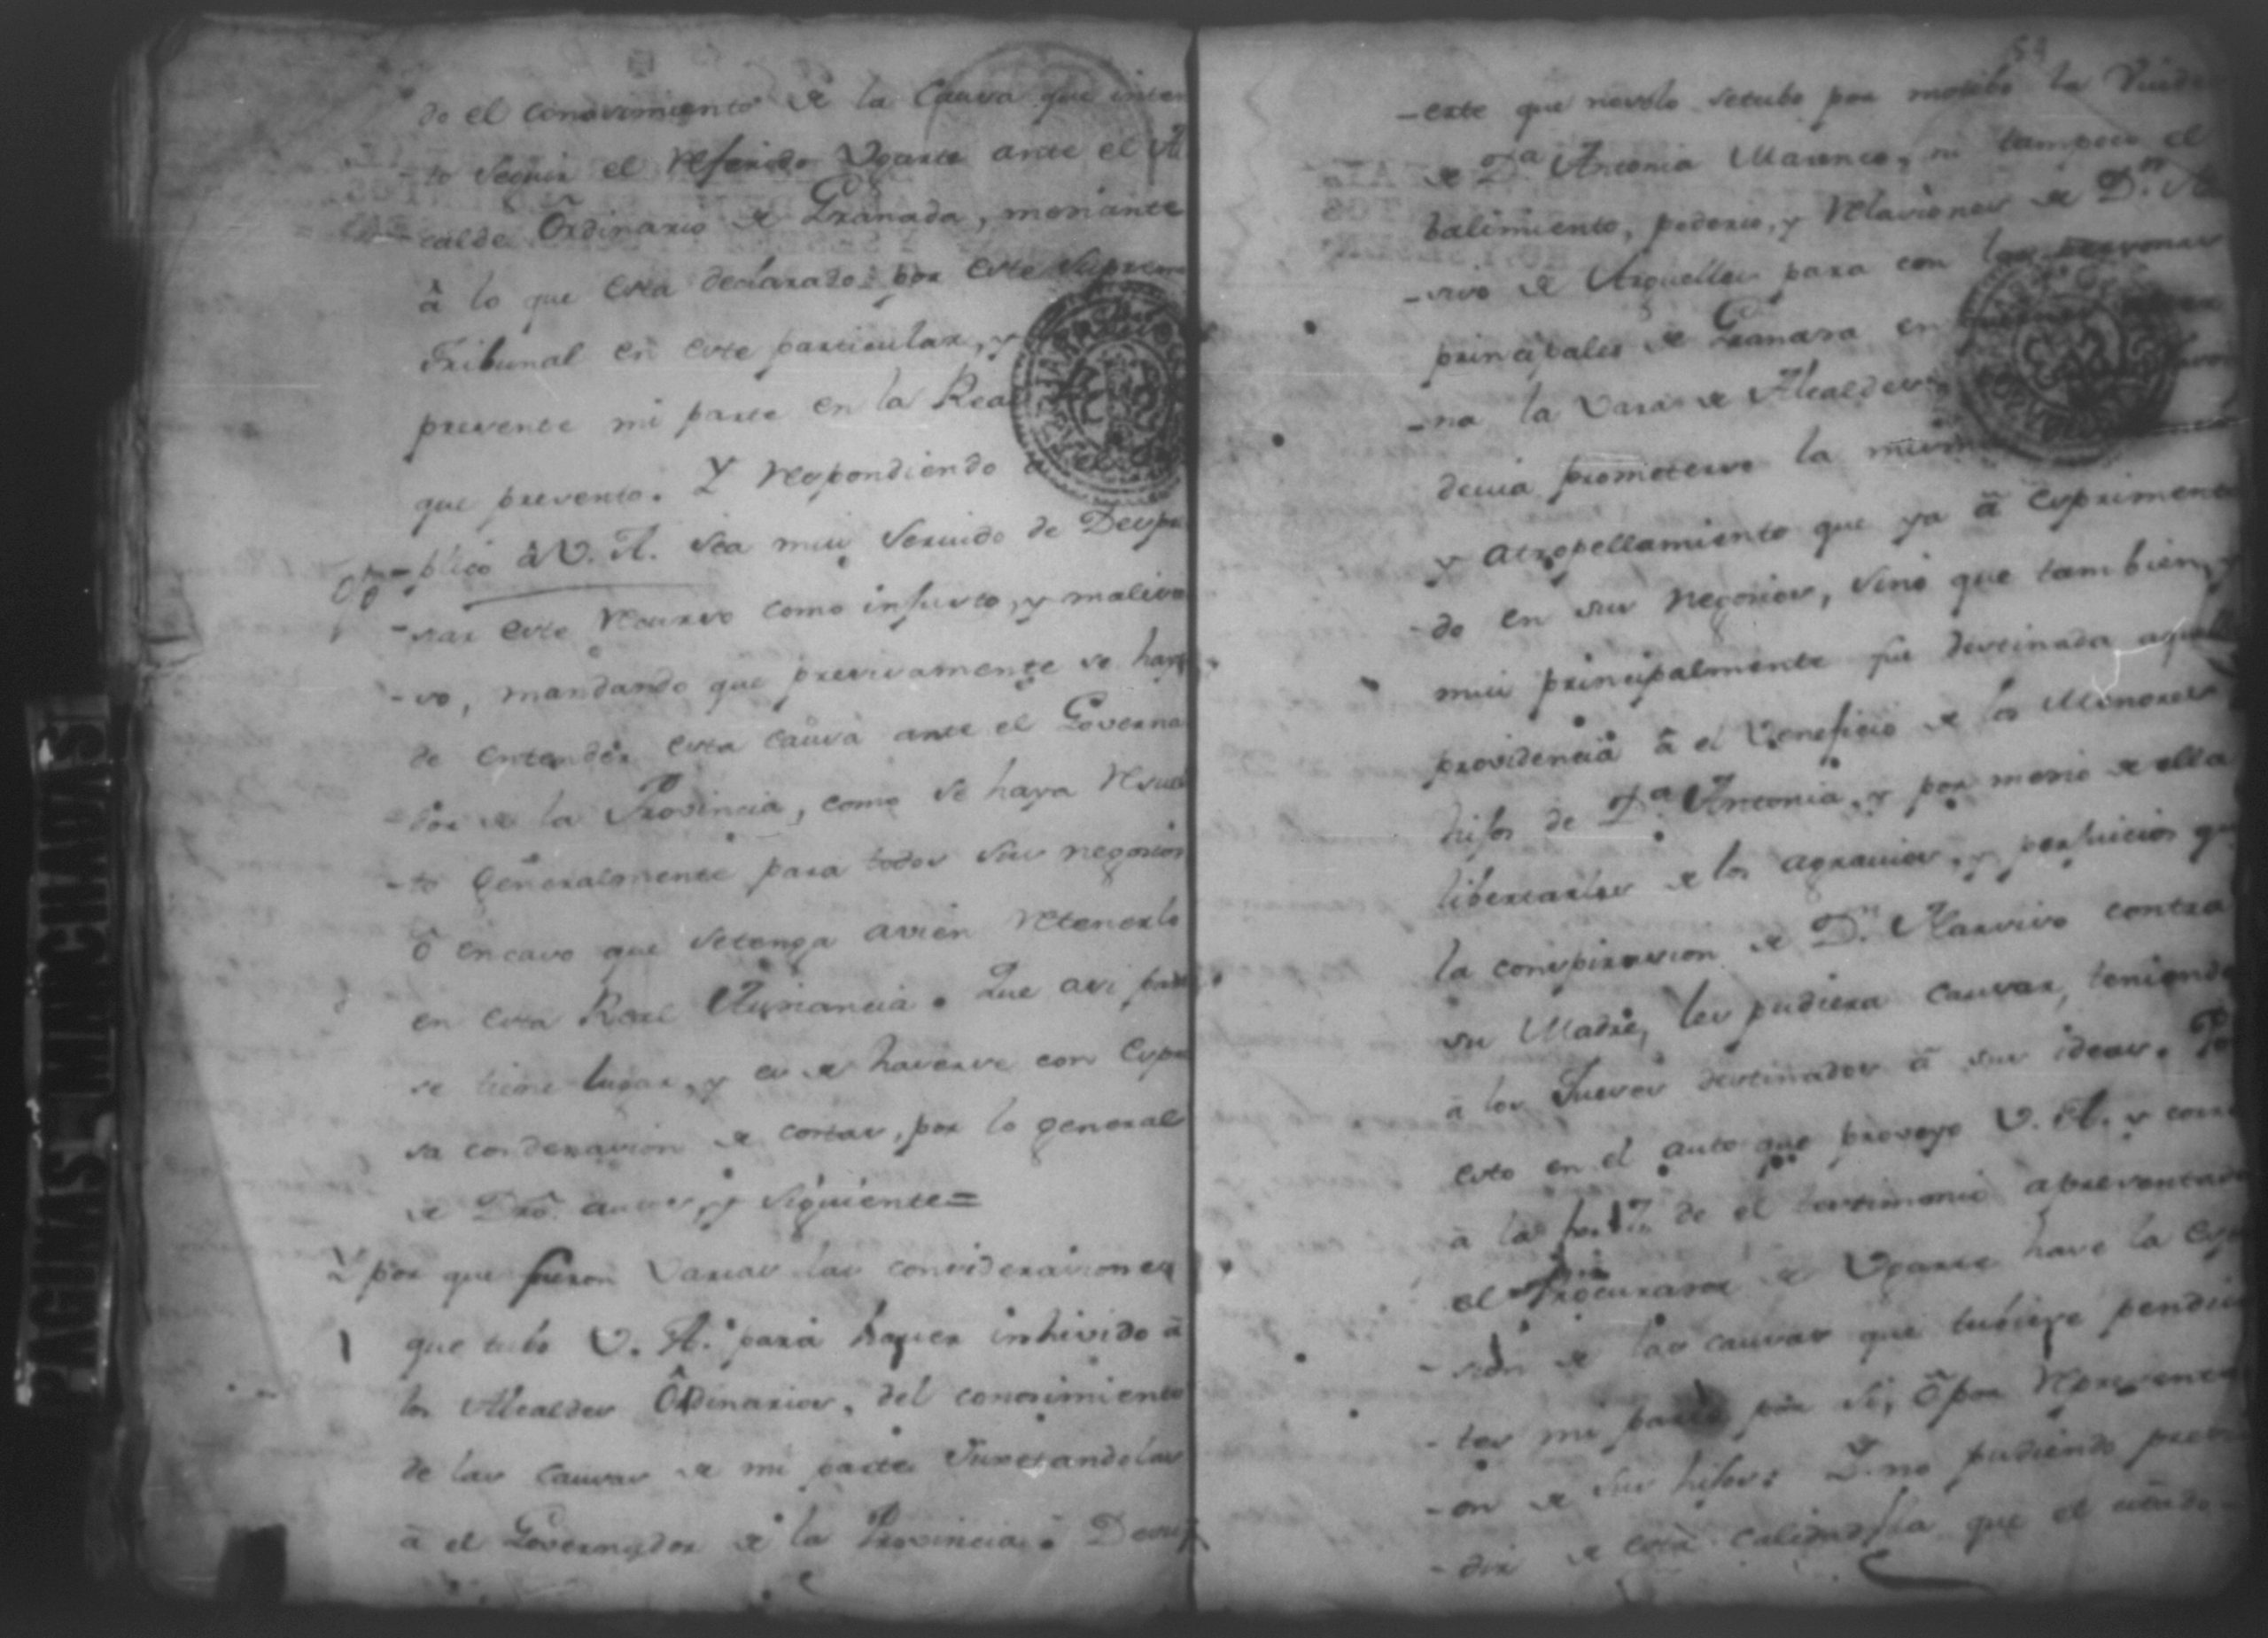 do el conosimiento de la Causa que inten
-to Seguir el Referido Vgarte ante el Al
calde Ordinario de Granada, mediante
â lo que esta declarado por este Supremo
Tribunal en este particular, y
prevente mi parte en la Real
que prevento. Y Respondiendo a el
-plico â V. A. sea mui Servido de Despre
-siar este Recurso como injusto, y malisio
-so, mandando que presisamente se haya
de entender esta causa ante el Governa
-dor de la Provincia, como se haya Resuel
-to Generalmente para todos sus negosios
ô en caso que se tenga asi en Retenerlo
en esta Real Audiancia. Que asi pare
se tiene lugar, y es de haserse con Espre
sa condenasion de costas, por lo general
de Dro. antes, y Siguiente=
Y por que fueron Varias las considerasiones
que tubo V. A. para haver inhivido â
los Alcaldes Ordinarios, del conosimiento
de las causas de mi parte Sugetandolas
â el Governador de la Provincia. Deou
54
-este que no solo se tubo por motibo la Viude
de Da. Antonia Marenco, ni tampoco el
balimiento, poderio, y Relasiones de Dn. Na
-siso de Arguelles para con las personas
principales de Granada en
-na la Vara de Alcaldes
devia prometerse la misma
y atropellamiento que ya â esprimenta
-do en sus Negosios, sino que tambien, y
mui principalmente fue destinada aquella
providencia â el Veneficio de los Menores
hijos de Da. Antonia, y por medio de ella
libertarles de los agravios, y perjuicios que
la conspirasion de Dn. Narsiso contra
su Madre, les pudiera causar, teniendo
â los Jueses destinados â sus ideas. Por
esto en el auto que proveyo V. A. y corre
â la fs. 17 de el testimonio apresentado
el Procurador de Vgarte hase la Espre
-sion de las causas que tubiese pendien
-tes mi parte por si, ô por Representa
-on de sus hijos: Y no pudiendo presin
-dir de esta calidad la que el